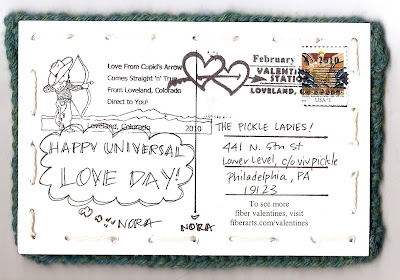 Love From Cupid's Arrow
Comes Straight 'n' True
From Loveland, Colorado
Direct to You!
Loveland, Colorado
2010
HAPPY UNIVERSAL
LOVE DAY!
NORA
NORA
February
2010
VALENTINE
STATION
LOVELAND, CO
USA
THE PICKLE LADIES!
441 N. 5th St
Lower Level, c/o viv pickle
Philadelphia, PA
19123
To see more
fiber valentines, visit
fiberarts.com/valentines